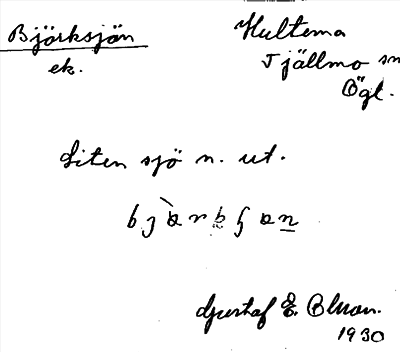 Björksjön
ek.
Hultema
Tjällmo sn
Ögl.
Liten sjö n. ut.
Gustaf E. Olsson.
1930